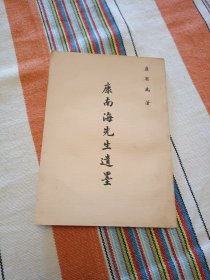 康有为 著
康南海先生遗墨